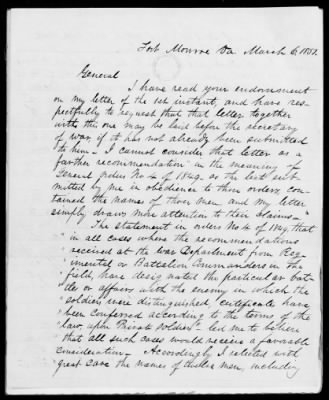 Fort Monroe Va March 6, 1851.
General
I have read your endorsement
on my letter of the 1st instant, and have res-
pectfully to request that that letter together
with this one may be laid before the secretary
of war, if it has not already been submitted
to him. I cannot consider that letter as a
further recommendation in the meaning of
General orders No 4 of 1849. as the last sub
mitted by me in obedience to them orders, con
tained the names of those men, and my letter
simply draws more attention to their claims.
The statement in orders No 4 of 1849, that
"in all cases where the recommendations
"received at the War Department from Reg-
"imental or Battalion Commanders in the
"field, have designated the particular bat-
"tle or affairs with the enemy in which the
"soldiers were distinguished, certificates have
"been conferred according to the terms of the
"law, upon Private soldiers" led me to believe
that all such cases would receive a favorable
consideration. Accordingly I selected with
great care the names of twelve men, including